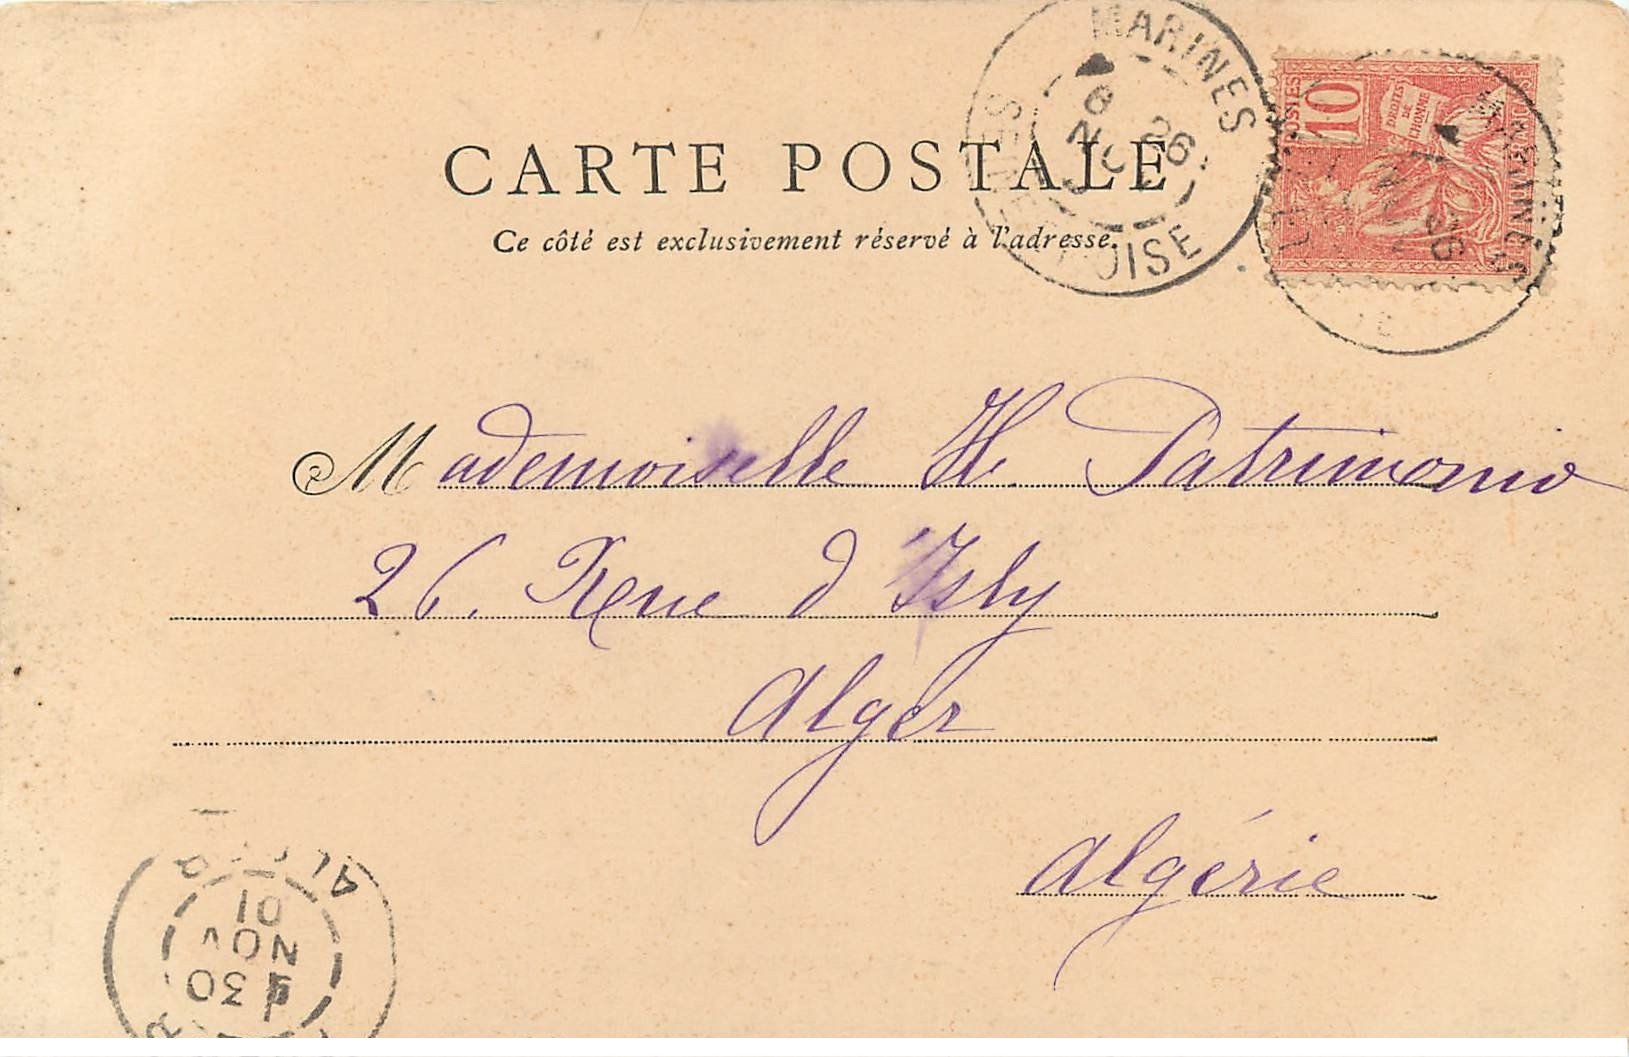 MARINES
6
26
SEINE-ET-OISE
POSTES
10
DROITS
DE
L'HOMME
MARINES
26
CARTE POSTALE
Ce côté est exclusivement réservé à l'adresse.
Mademoiselle H. Patrimonio
26. Rue d'Isly
Alger
Algérie
ALGER
30
NOV
01